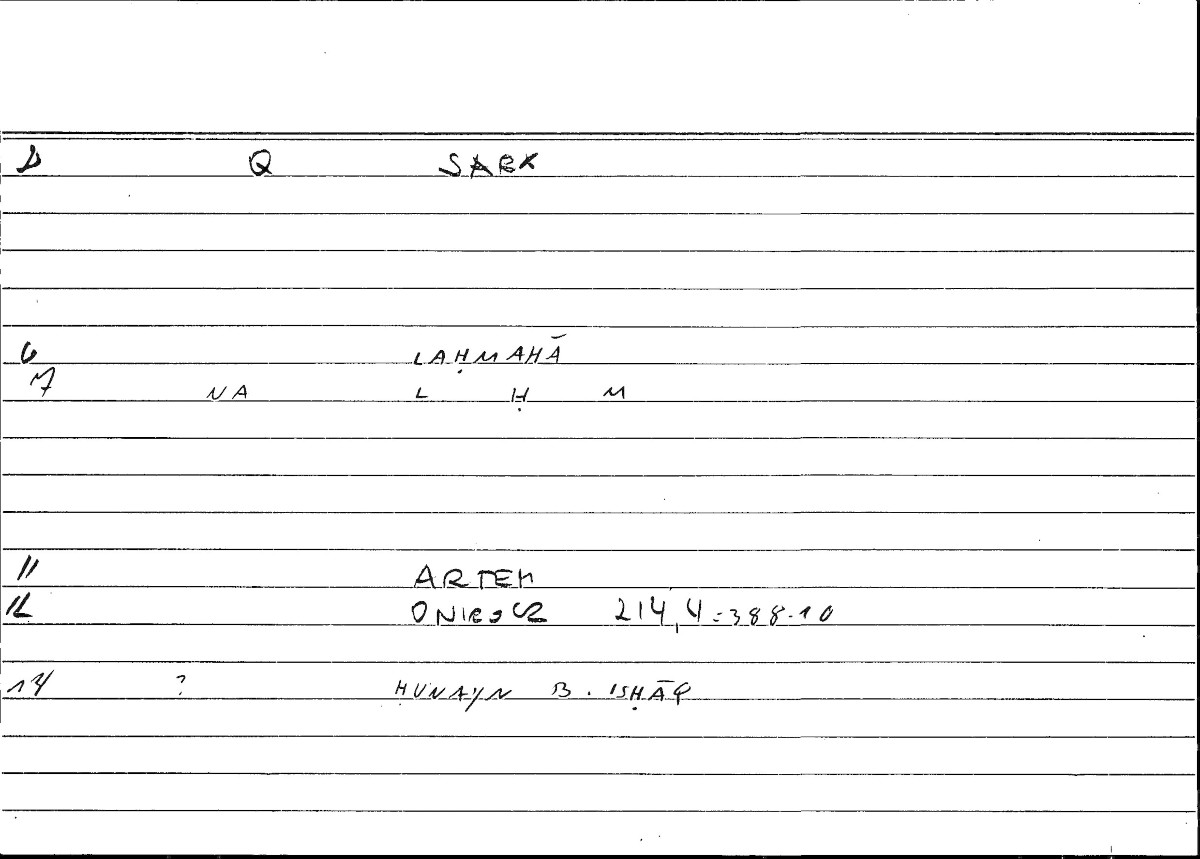 Q SARX
6 LAḤMAHĀ
7 NA L Ḥ M
11 ARTEM
12 ONIROCR 214,4=388.10
14 ? ḤUNAYN B. ISḤĀQ